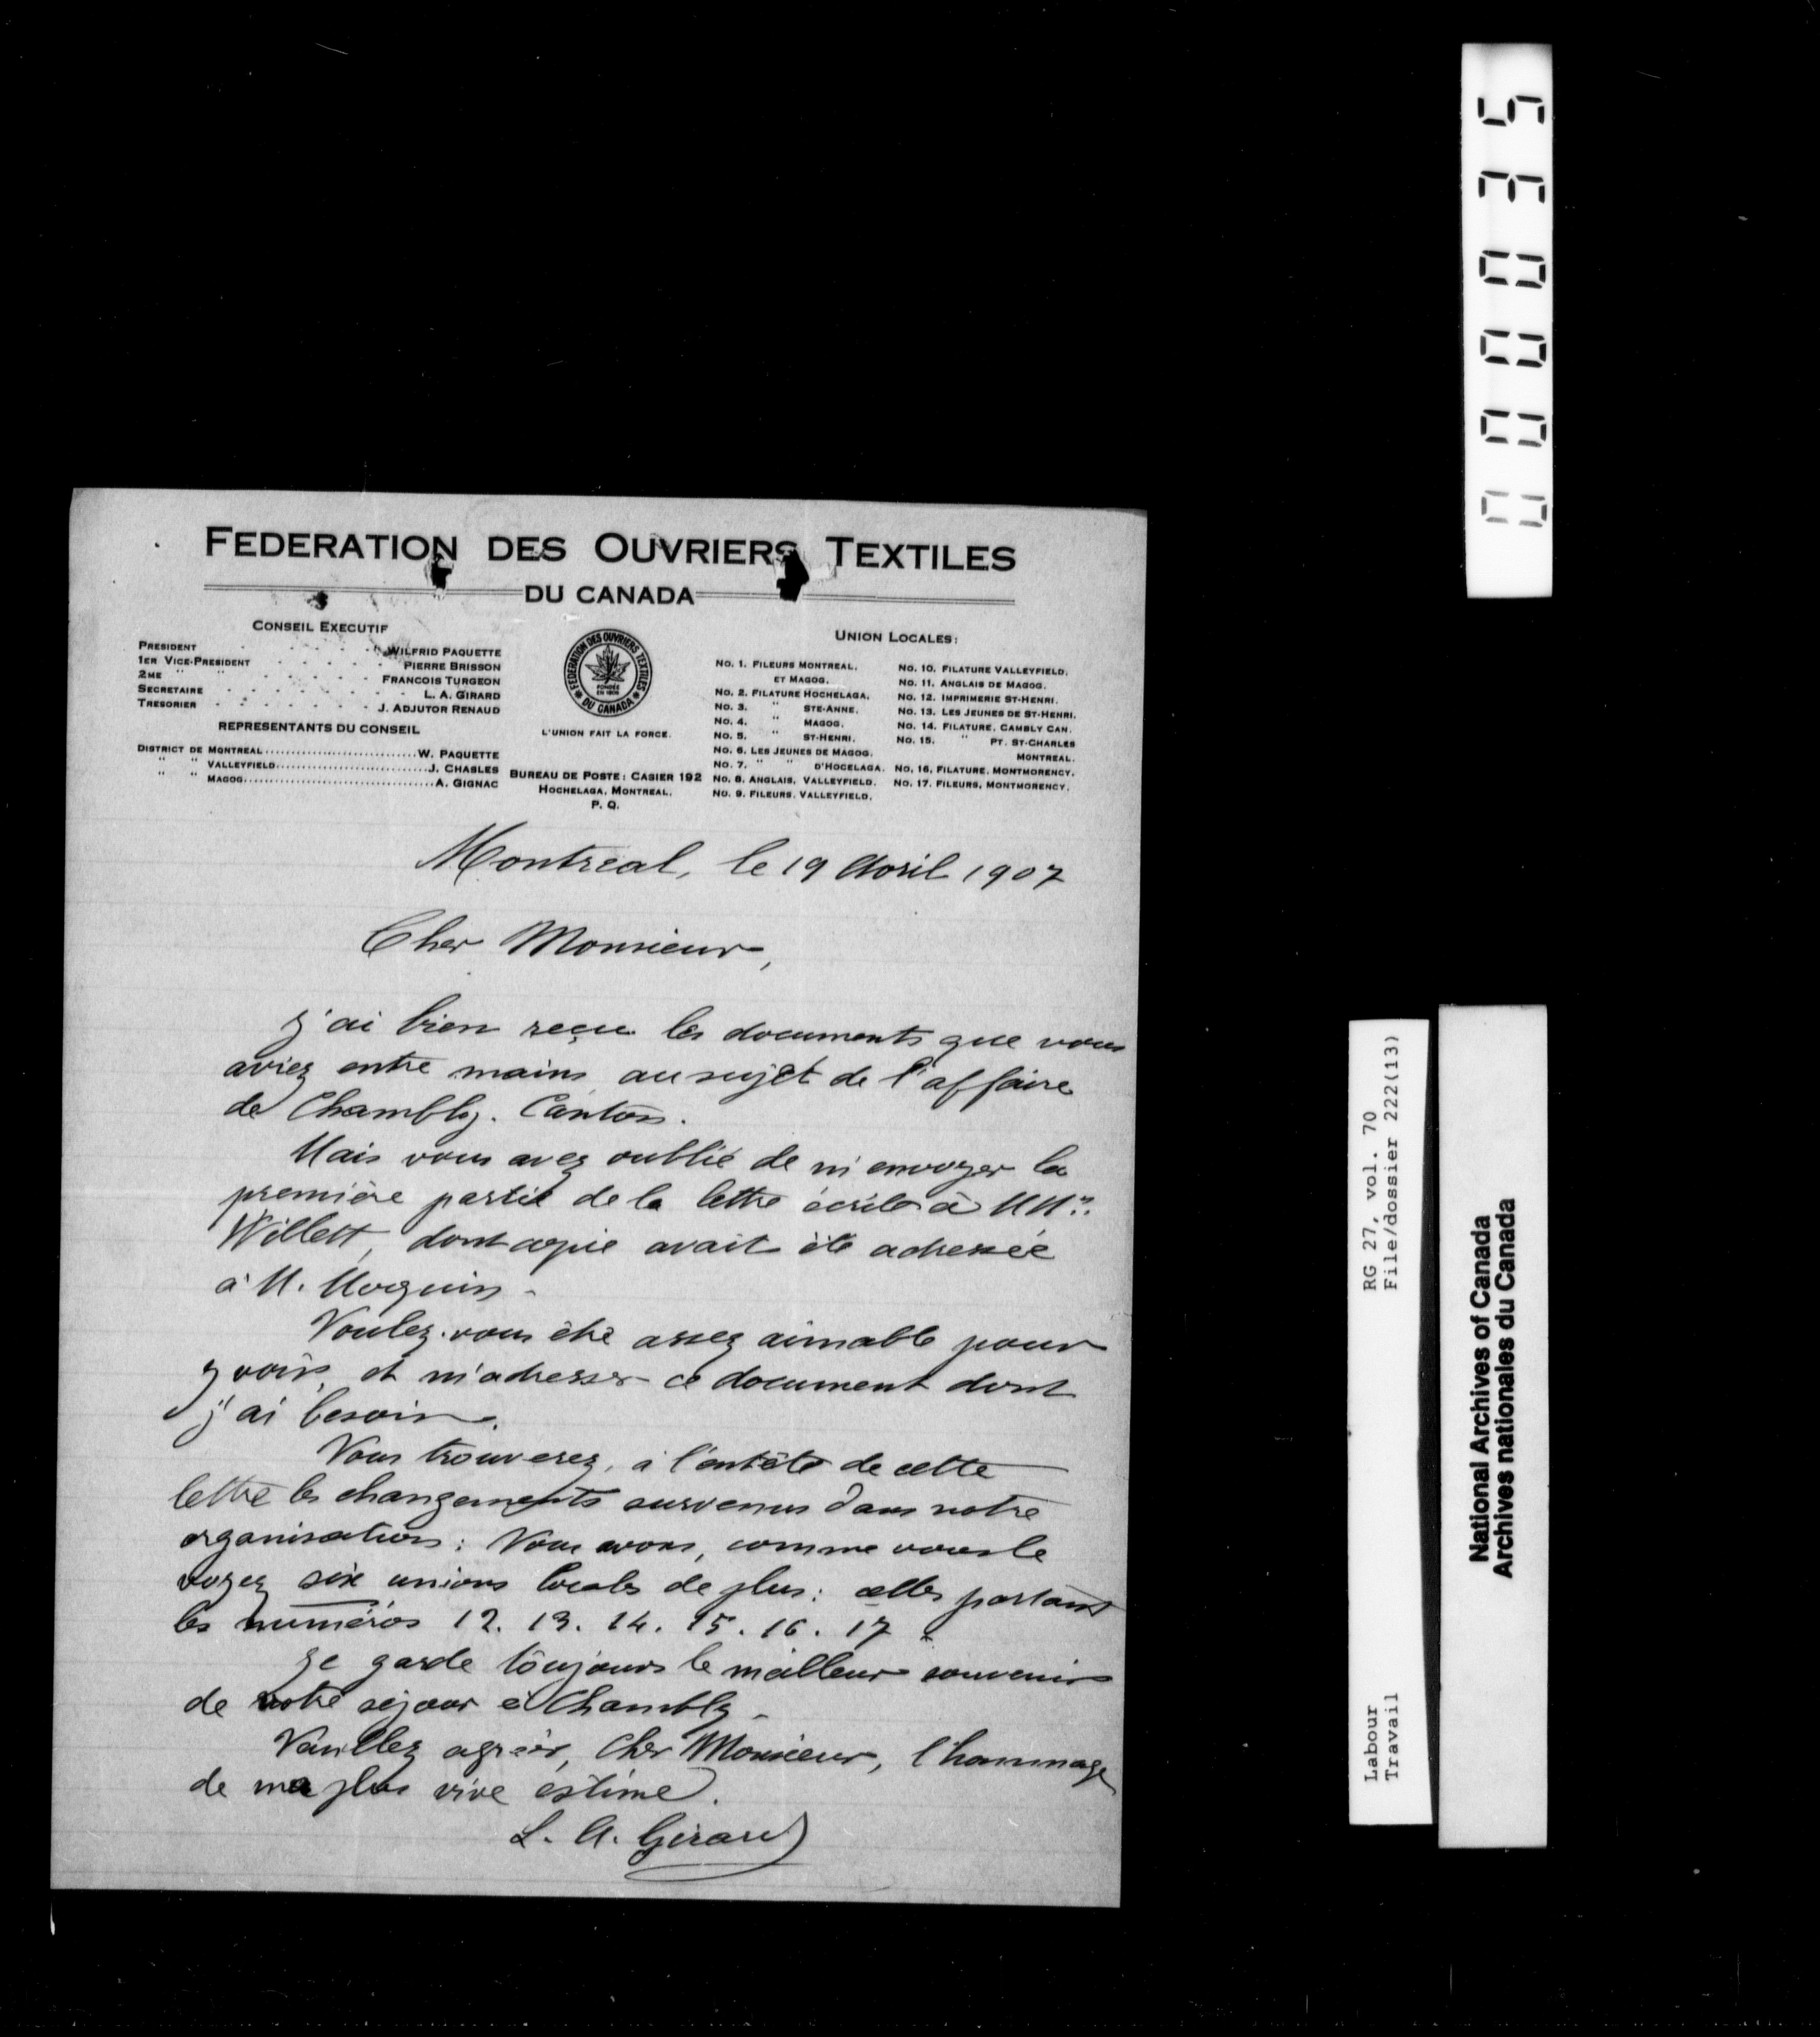 FEDERATION DES OUVRIERS TEXTILES
DU CANADA
CONSEIL EXECUTIF
PRESIDENT - - - - - WILFRID PAQUETTE
1ER VICE-PRESIDENT - - - - - PIERRE BRISSON
2ME " " - - - - - FRANCOIS TURGEON
SECRETAIRE - - - - - - - L. A. GIRARD
TRESORIER - - - - - - - J. ADJUTOR RENAUD
REPRESENTANTS DU CONSEIL
DISTRICT DE MONTREAL..............................W. PAQUETTE
" " VALLEYFIELD..............................J. CHASLES
" " MAGOG..............................A. GIGNAC
FEDERATION DES OUVRIERS TEXTILES
DU CANADA
FONDÉE
EN 1906
L'UNION FAIT LA FORCE.
BUREAU DE POSTE: CASIER 192
HOCHELAGA, MONTREAL.
P. Q.
UNION LOCALES:
NO. 1. FILEURS MONTREAL.
ET MAGOG.
NO. 2. FILATURE HOCHELAGA.
NO. 3. " STE-ANNE.
NO. 4. " MAGOG.
NO. 5. " ST-HENRI.
NO. 6. LES JEUNES DE MAGOG.
NO. 7. " " D'HOCELAGA.
NO. 8. ANGLAIS, VALLEYFIELD.
NO. 9. FILEURS. VALLEYFIELD.
NO. 10. FILATURE VALLEYFIELD.
NO. 11. ANGLAIS DE MAGOG.
NO. 12. IMPRIMERIE ST-HENRI.
NO. 13. LES JEUNES DE ST-HENRI.
NO. 14. FILATURE, CAMBLY CAN.
NO. 15. " PT. ST-CHARLES
MONTREAL.
NO. 16. FILATURE. MONTMORENCY.
NO. 17. FILEURS, MONTMORENCY.
Montreal, le 19 Avril 1907
Cher Monsieur,
J'ai bien reçu les documents que vous
aviez entre mains au sujet de l'affaire
de Chambly. Canton.
Mais vous avez oublié de m'envoyer la
première partie de la lettre écrite à
Willett, dont copie avait été adressée
à M. Moquin.
Voulez-vous être assez aimable pour
y voir, et m'adresser ce document dont
j'ai besoin.
Vous trouverez, à l'entête de cette
lettre les changements survenus dans notre
organisation: Nous avons, comme vous le
voyez six unions locales de plus: celles portant
les numéros 12. 13. 14. 15. 16. 17.
Je garde toujours le meilleur souvenir
de notre séjour à Chambly.
Veuillez agréer, Cher Monsieur, l'hommage
de ma plus vive estime.
L. A. Girard
000035
Labour
Travail
RG 27, vol. 70
File/dossier 222(13)
National Archives of Canada
Archives nationales du Canada